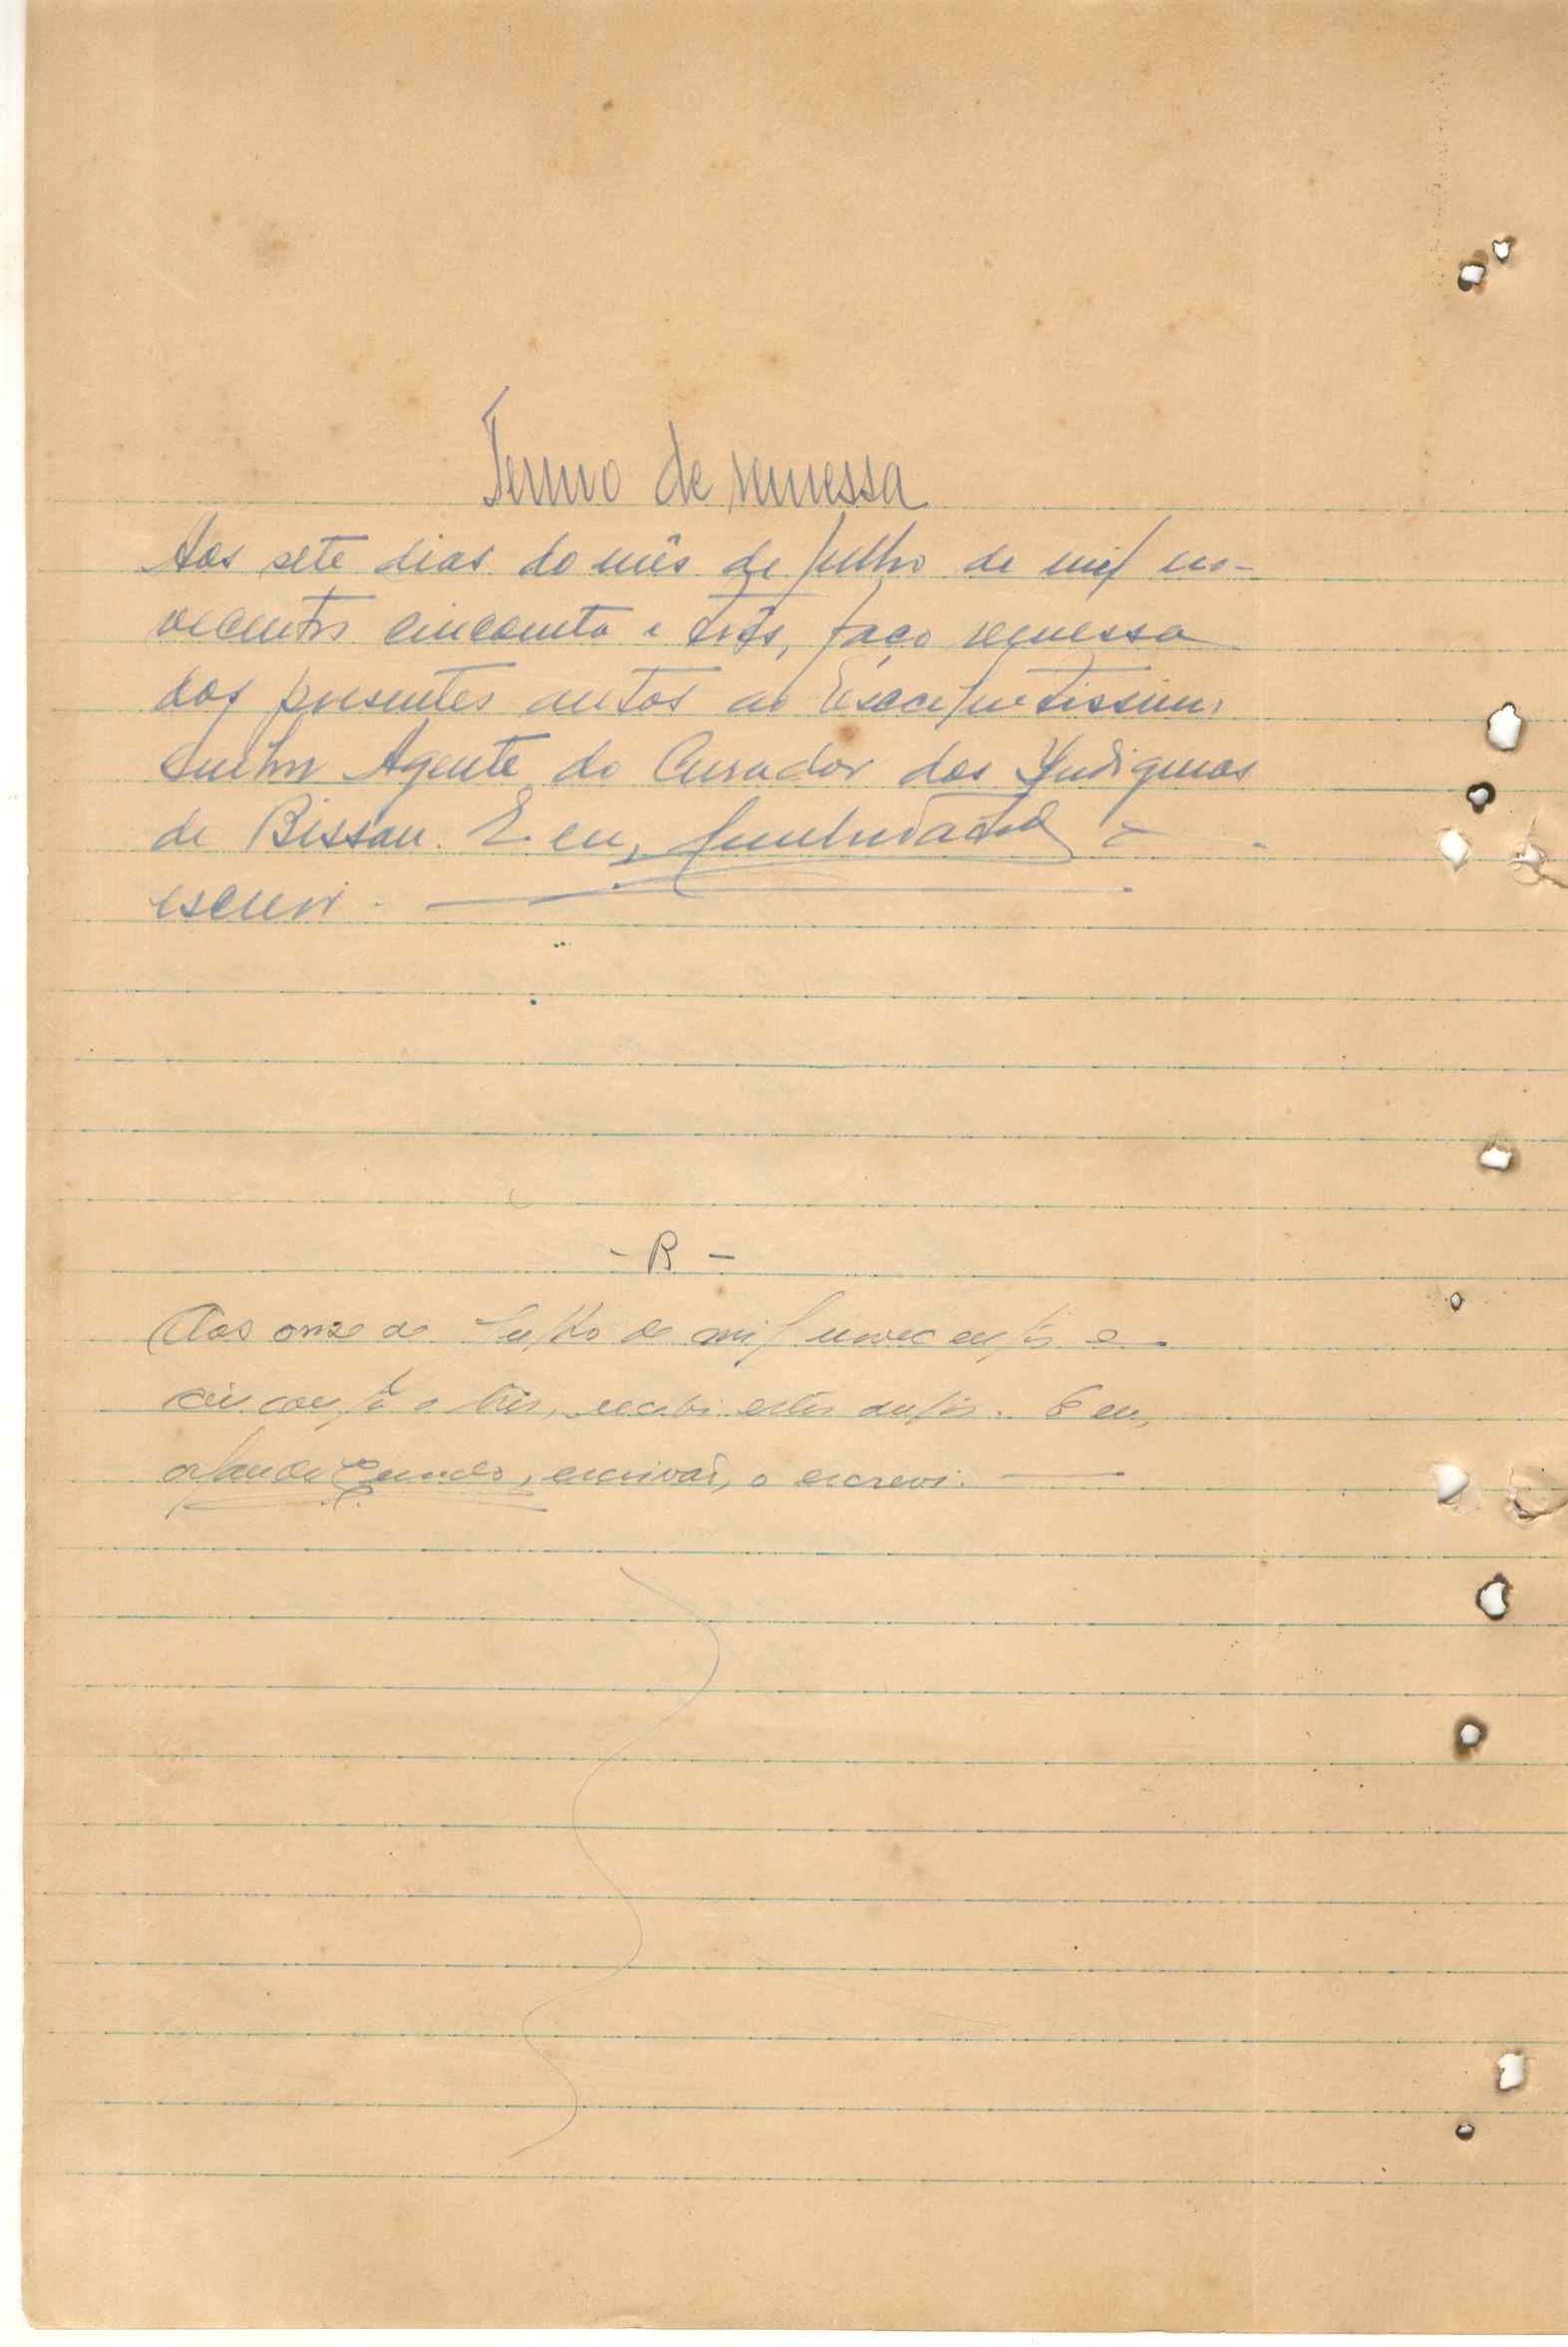 Termo de remessa
Aos sete dias do mês de Julho de mil no-
vecentos cincoenta e três, faço remessa
dos presentes autos ao Excelentissimo
Senhor Agente do Curador dos Indigenas
de Bissau. E eu, o
escrevi.
- R -
Aos onze de Julho de mil novecentos e
cincoenta e três, recebi estes autos. E eu,
Orlando, escrivão, o escrevi.